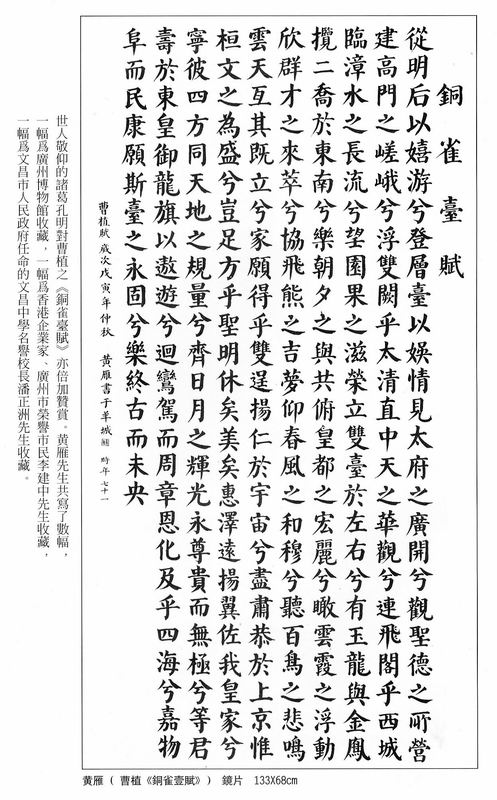 銅雀臺賦
從明后以嬉游兮登層臺以娛情見太府之廣開兮觀聖德之所營
建高門之嵯峨兮浮雙闕乎太清直中天之華觀兮連飛閣乎西城
臨漳水之長流兮望園果之滋榮立雙臺於左右兮有玉龍與金鳳
攬二喬於東南兮樂朝夕之與共俯皇都之宏麗兮瞰雲霞之浮動
欣群才之來萃兮協飛熊之吉夢仰春風之和穆兮聽百鳥之悲鳴
雲天互其既立兮家願得乎雙逞揚仁於宇宙兮盡肅恭於上京惟
桓文之為盛兮豈足方乎聖明休矣美矣惠澤遠揚翼佐我皇家兮
寧彼四方同天地之規量兮齊日月之輝光永尊貴而無極兮等君
壽於東皇御龍旗以遨遊兮迴鸞駕而周章恩化及乎四海兮嘉物
阜而民康願斯臺之永固兮樂終古而未央
曹植賦 歲次戊寅年仲秋 黄雁書于羊城 時年七十一
世人敬仰的諸葛孔明對曹植之《銅雀臺賦》亦倍加贊賞。黄雁先生共寫了數幅，
一幅爲廣州博物館收藏，一幅爲香港企業家、廣州市榮譽市民李建中先生收藏，
一幅爲文昌市人民政府任命的文昌中學名譽校長潘正洲先生收藏。
黄雁（曹植《銅雀壹賦》） 鏡片 133X68cm